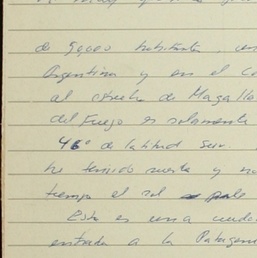 de 50,000 habitantes, en
Argentina y en el Co
al estrecho de Magalla
del Fuego es solamente
46° de latitud Sur.
he tenido suerte y no
tiempo el sol
Esta es una ciuda
entrada a la Patagon